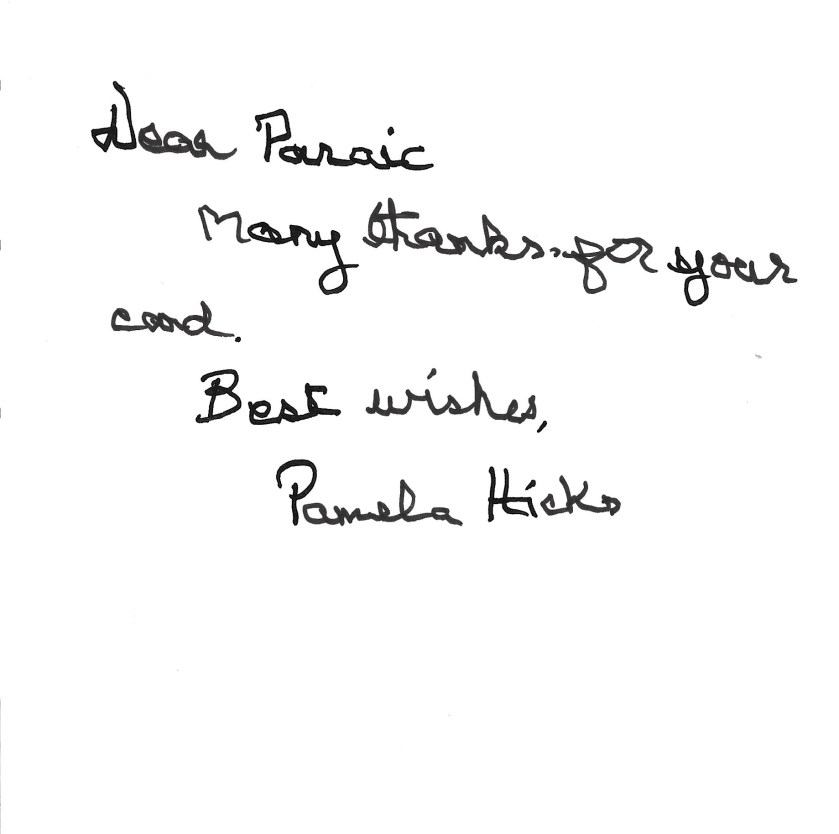 Dear Paraic
Many thanks for your
card.
Best wishes,
Pamela Hicks